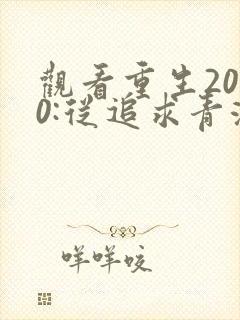 觀看重生20
0:從追求青
咩咩咬